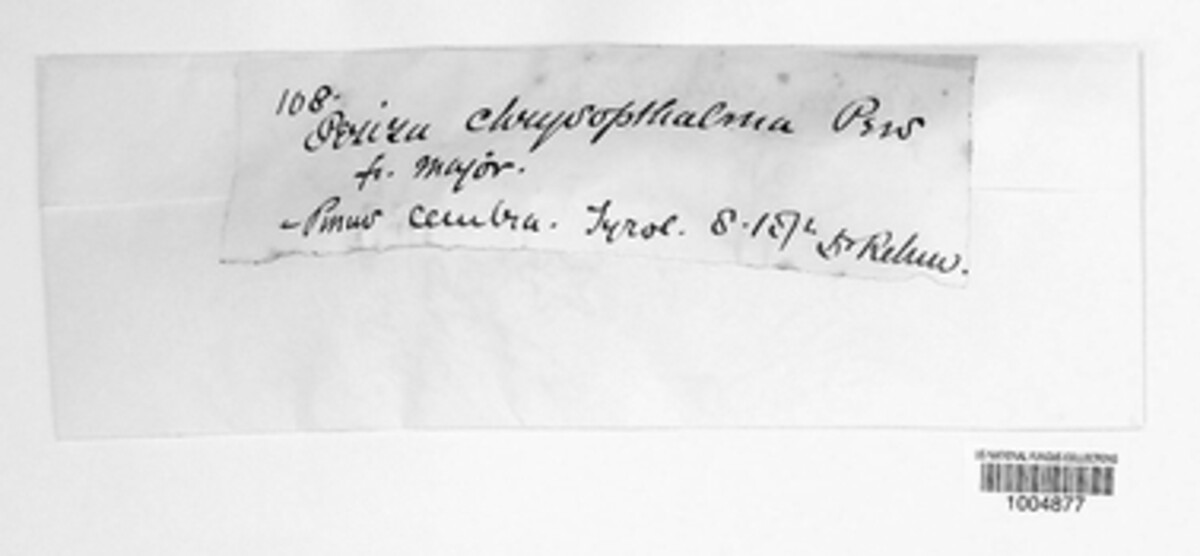 108.
Peziza chrysopthalma Pers
fr. major.
- Pinus cembra. Tyrol. 8. 187 Dr Rehm.
US NATIONAL FUNGUS COLLECTIONS
1004877